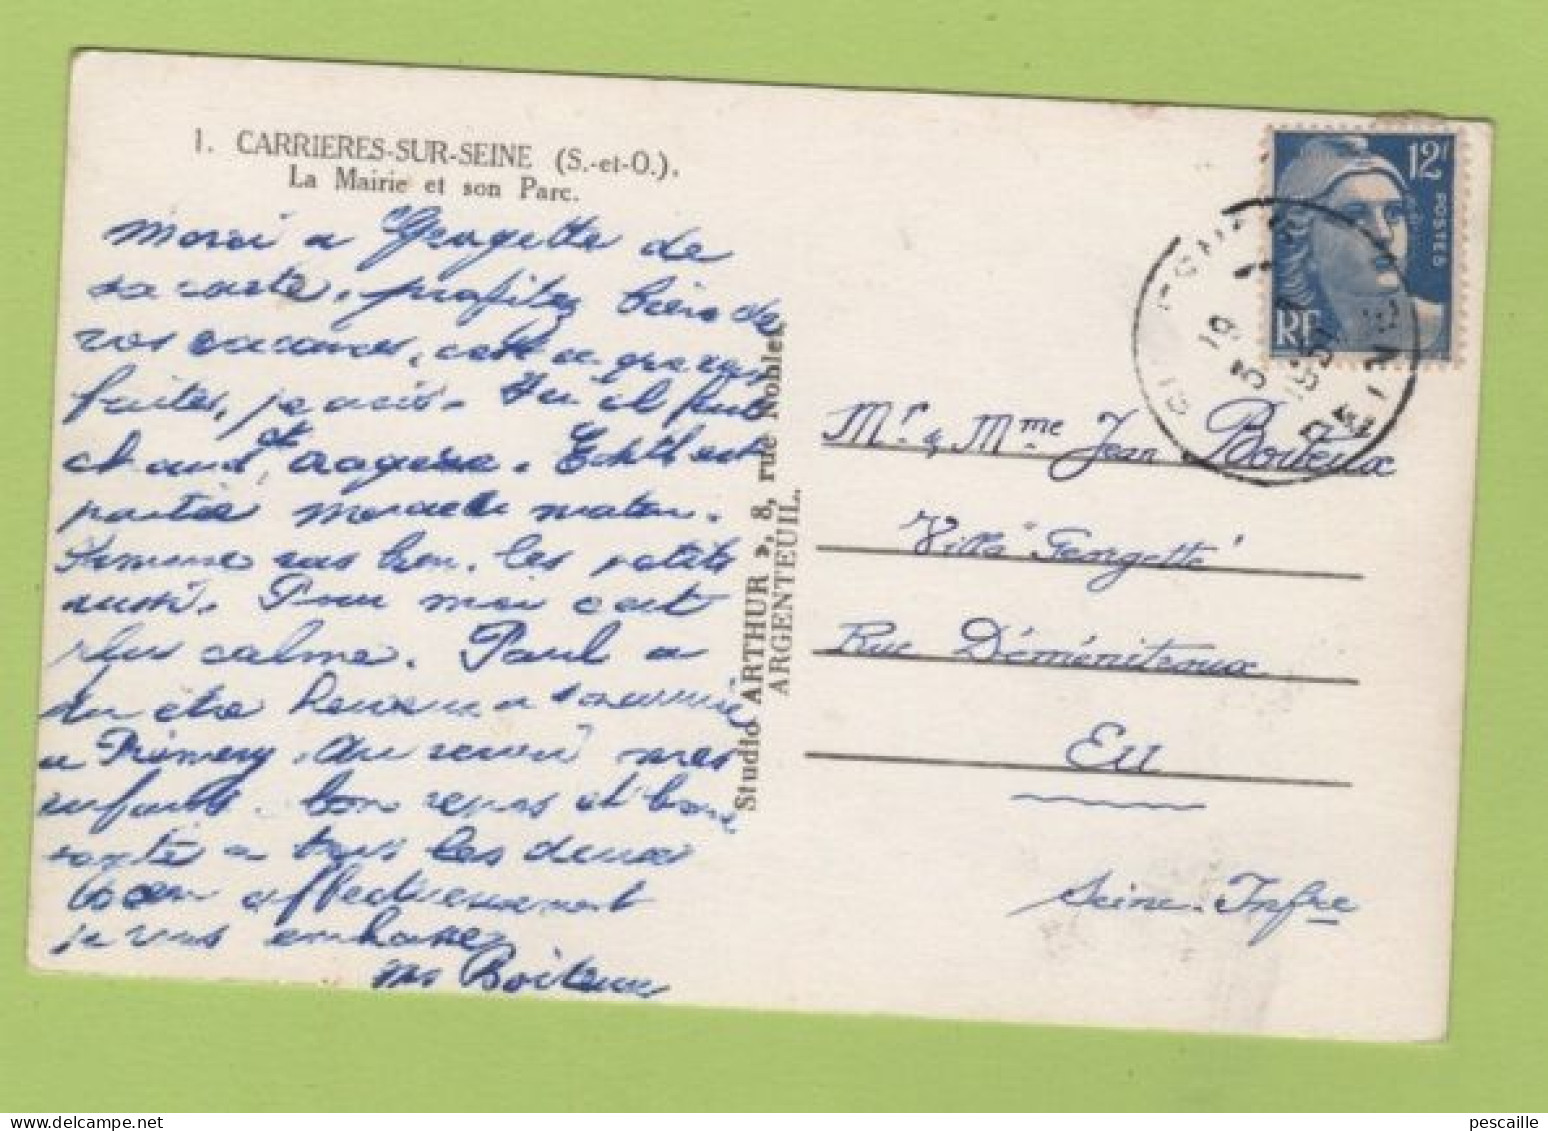 1. CARRIERES-SUR-SEINE (S.-et-O.).
La Mairie et son Parc.
Merci a Geogette de
sa carte, profitez bien de
vos vacances, c'est
faites, je crois. Ici il fait
chaud, et orageux. Edith est
partie mercredi matin.
Simone vas bien. les petits
aussi. Pour moi c'est
plus calme. Paul a
du être heureux
a Prémery. Au revoir mes
enfants. bon repos et bonne
santé a tous les deux
bien affectueusement
je vous embrasse
Me Boiteux
Studio ARTHUR », 8, rue Noblet
ARGENTEUIL.
12F
POSTES
RF
19
3
SEINE
Mr & Mme Jean Boiteux
Villa "Gengette"
Rue Déméniteroux
EU
Seine-Infre
pescaille